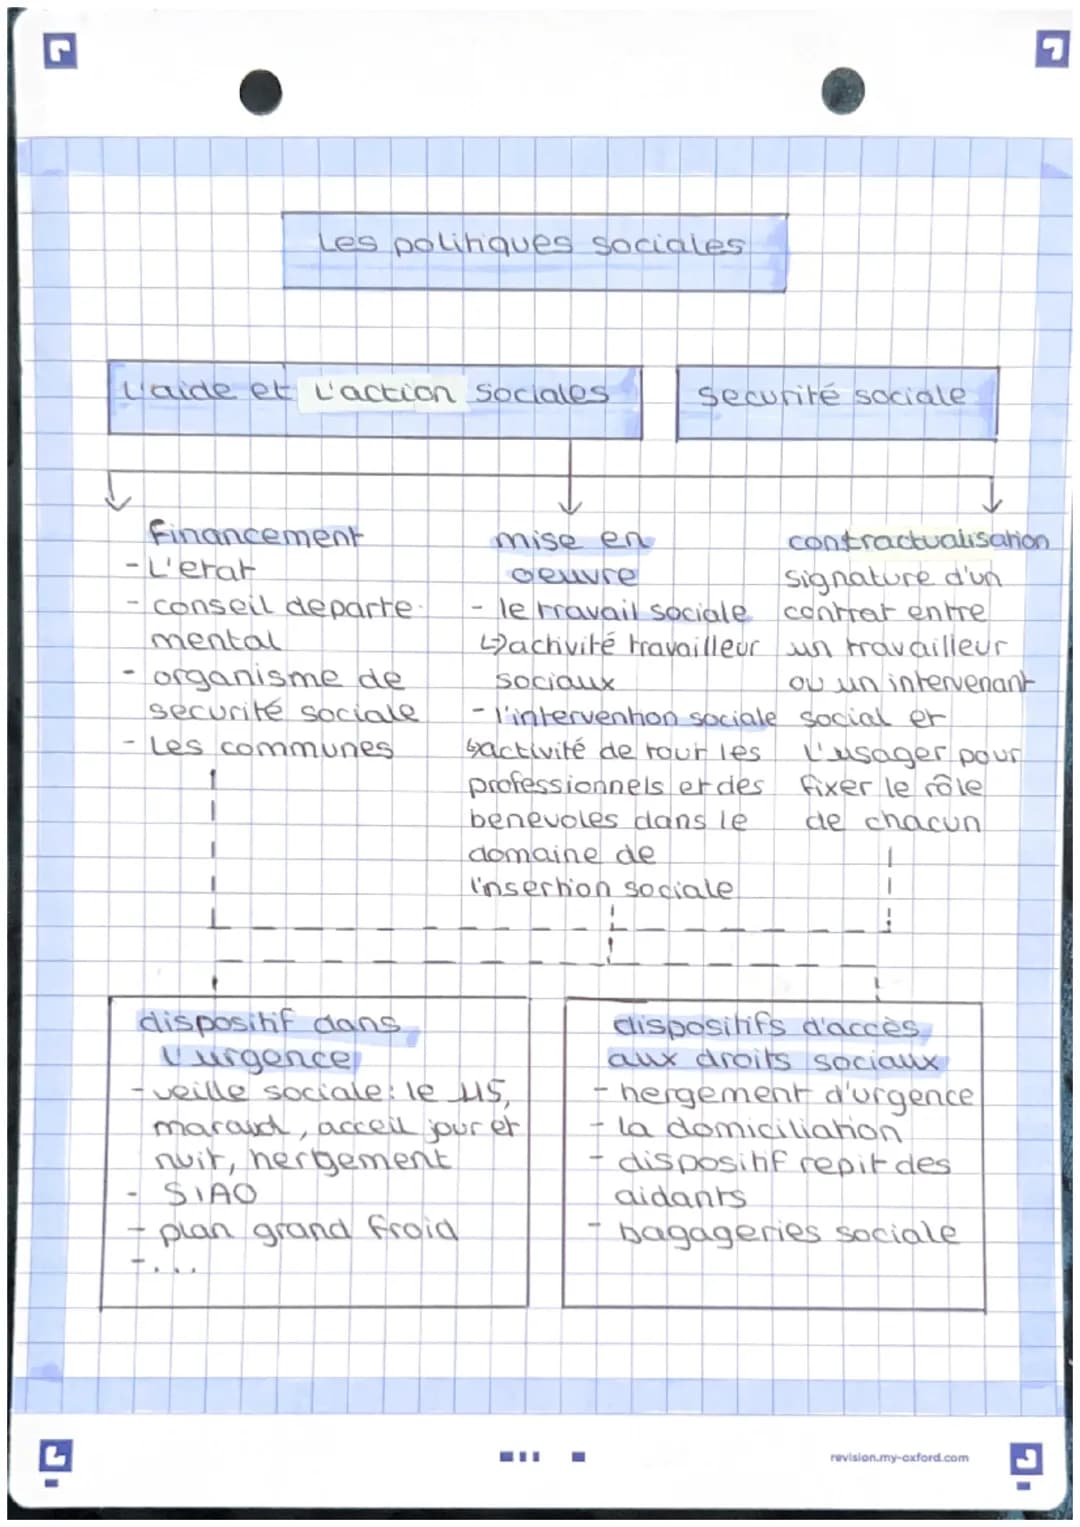 Les politiques sociales
L'aide et L'action sociales
securité sociale
financement
- L'etat
- conseil departe-
mental
- organisme de
securité sociale
- Les communes
mise en
oeuvre
- le travail sociale
↳ activité travailleur
sociaux
- l'intervention sociale
↳ activité de tour les
professionnels et des
benevoles dans le
domaine de
l'insertion sociale
contractualisation
signature d'un
contrat entre
un travailleur
ou un intervenant
social et
L'usager pour
fixer le rôle
de chacun
dispositif dans
l'urgence
- veille sociale: le 115,
maraud, acceil jour et
nuit, hergement
- SIAO
- plan grand froid
- ...
dispositifs d'accès
aux droits sociaux
- hergement d'urgence
- la domiciliation
- dispositif repit des
aidants
- bagageries sociale
revision.my-oxford.com